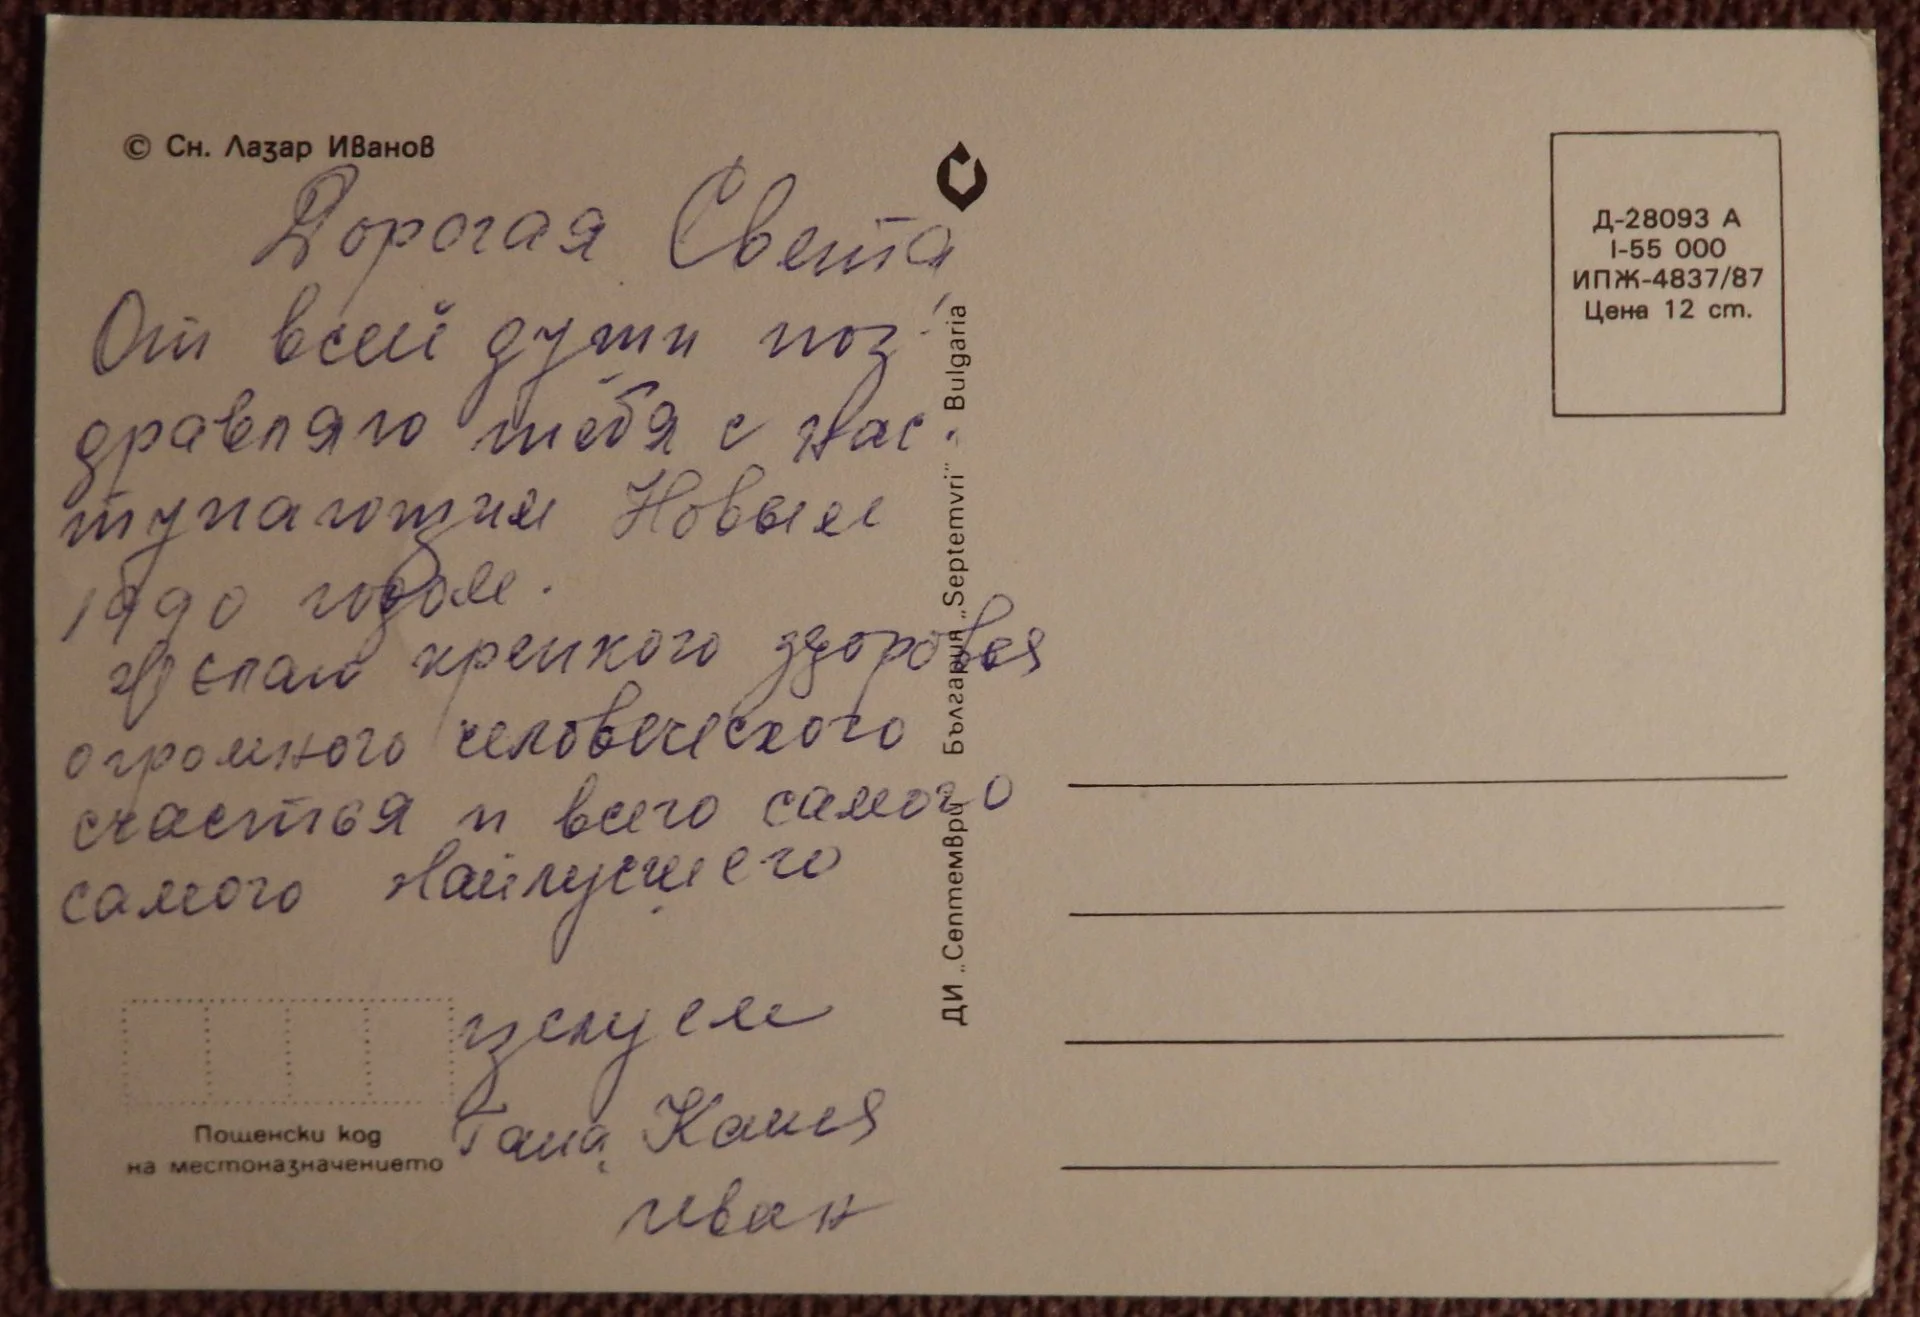 © Сн. Лазар Иванов
Дорогая Света
От всей души поз-
дравляю тебя с нас-
тупающим Новым
1990 годом.
Желаю крепкого здоровья
огромного человеческого
счастья и всего самого
самого найлусшего
целуем
Таня, Каля
Иван
Пощенски код
на местоназначението
ДИ „Септември" България „Septemvri" - Bulgaria
Д-28093 А
I-55 000
ИПЖ-4837/87
Цена 12 ст.